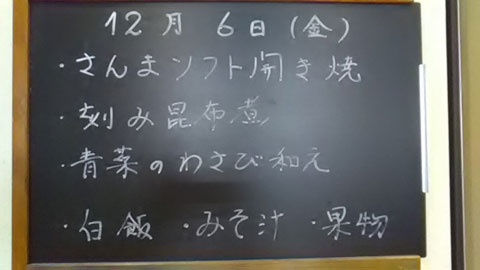 12月 6日(金)
・さんまソフト開き焼
・刻み昆布煮
・青菜のわさび和え
・白飯 ・みそ汁 ・果物